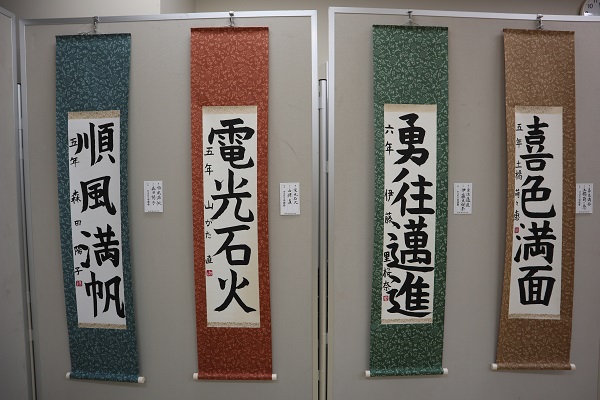 順風満帆
五年 森田陽子
電光石火
五年 山がた 直
勇往邁進
六年 伊藤
喜色満面
五年